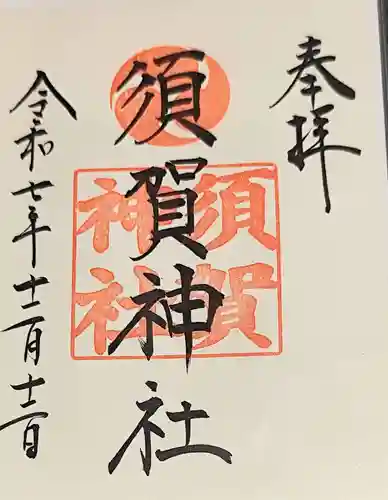 奉拝
須賀神社
須賀神社
令和七年十二月十二日